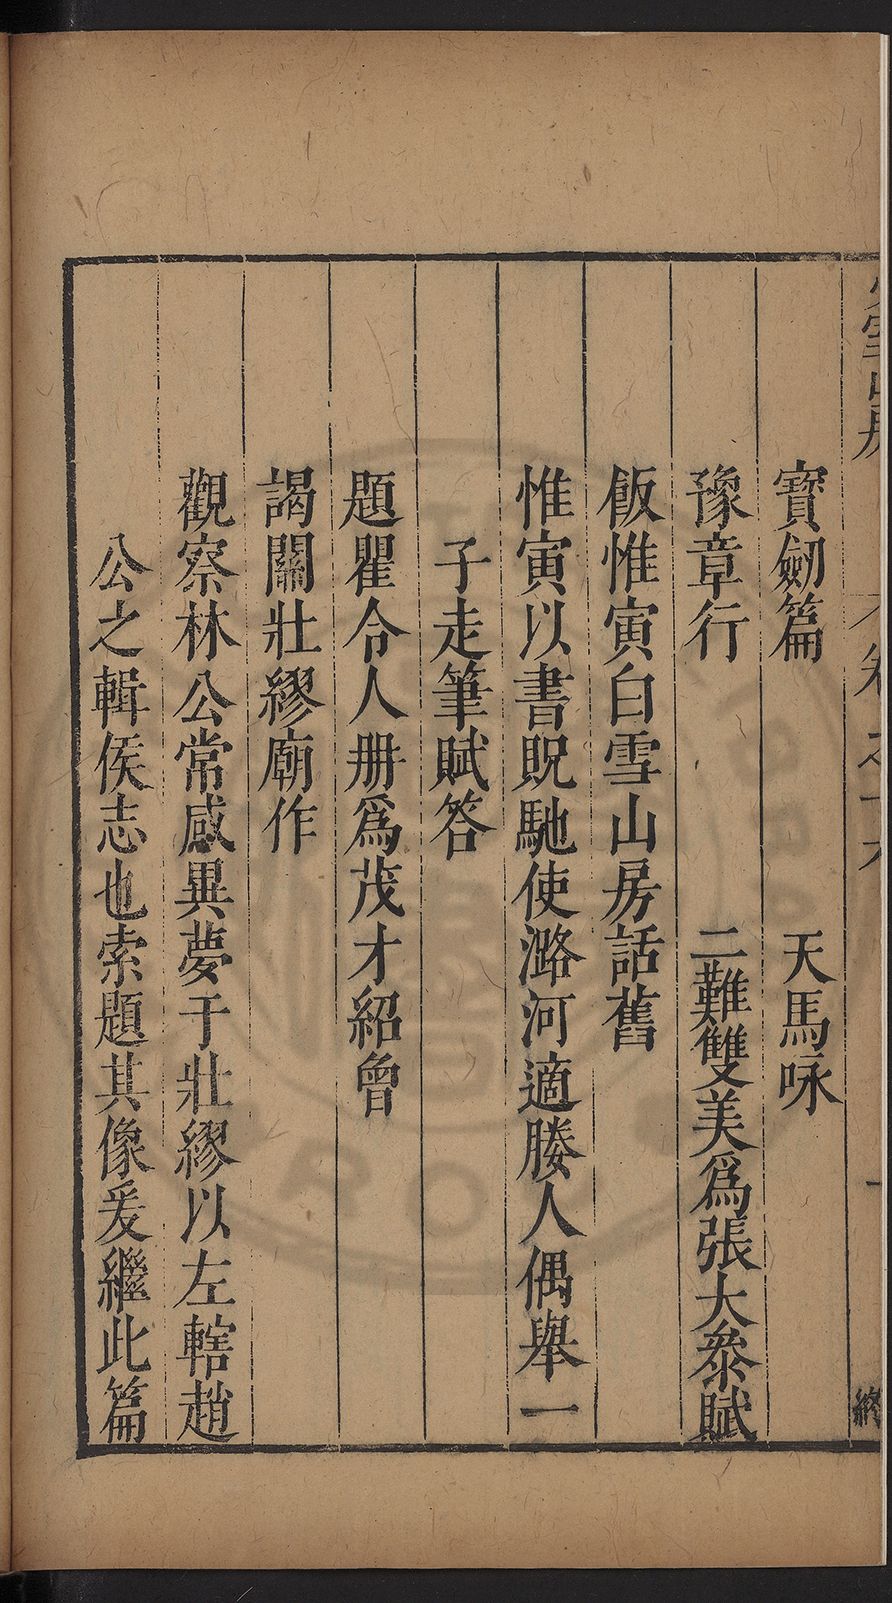 寶劒篇　天馬咏
豫章行　二難雙美爲張大參賦
飯惟寅白雪山房話舊
惟寅以書貺馳使潞河適媵人偶舉一
子走筆賦答
題瞿令人册爲茂才紹曾
謁關壯繆廟作
觀察林公常感異夢于壯繆以左轄趙
公之輯侯志也索題其像爰繼此篇
終